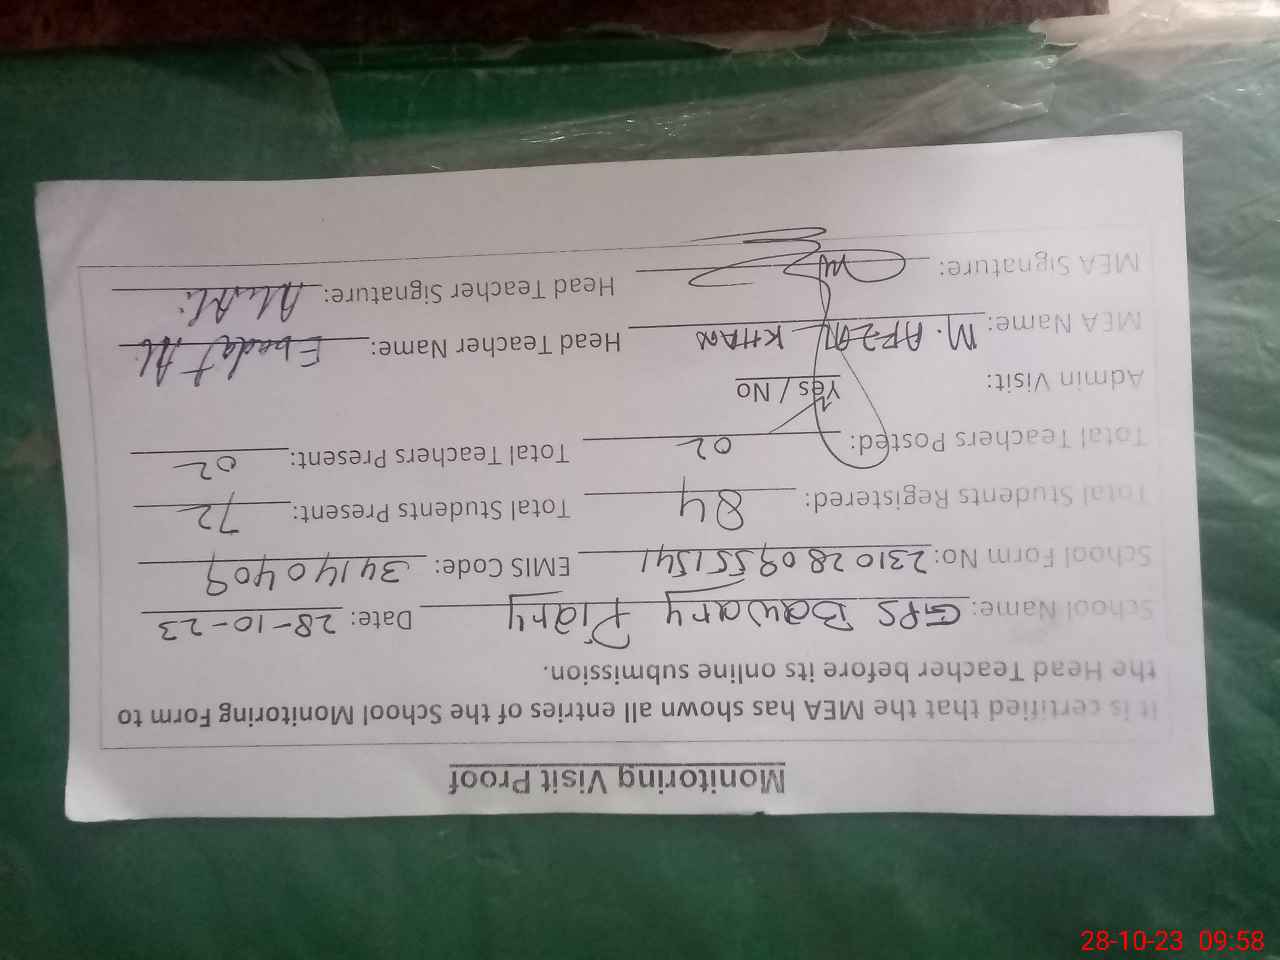 Monitoring Visit Proof
It is certified that the MEA has shown all entries of the School Monitoring Form to
the Head Teacher before its online submission.
School Name: GPS Bawary Piary Date: 28-10-23
School Form No: 23102809551541 EMIS Code: 34140409
Total Students Registered: 84 Total Students Present: 72
Total Teachers Posted: 02 Total Teachers Present: 02
Admin Visit: Yes / No
MEA Name: M. AFZAL KHAN Head Teacher Name: Ebadat Ali
MEA Signature: Head Teacher Signature:
28-10-23 09:58